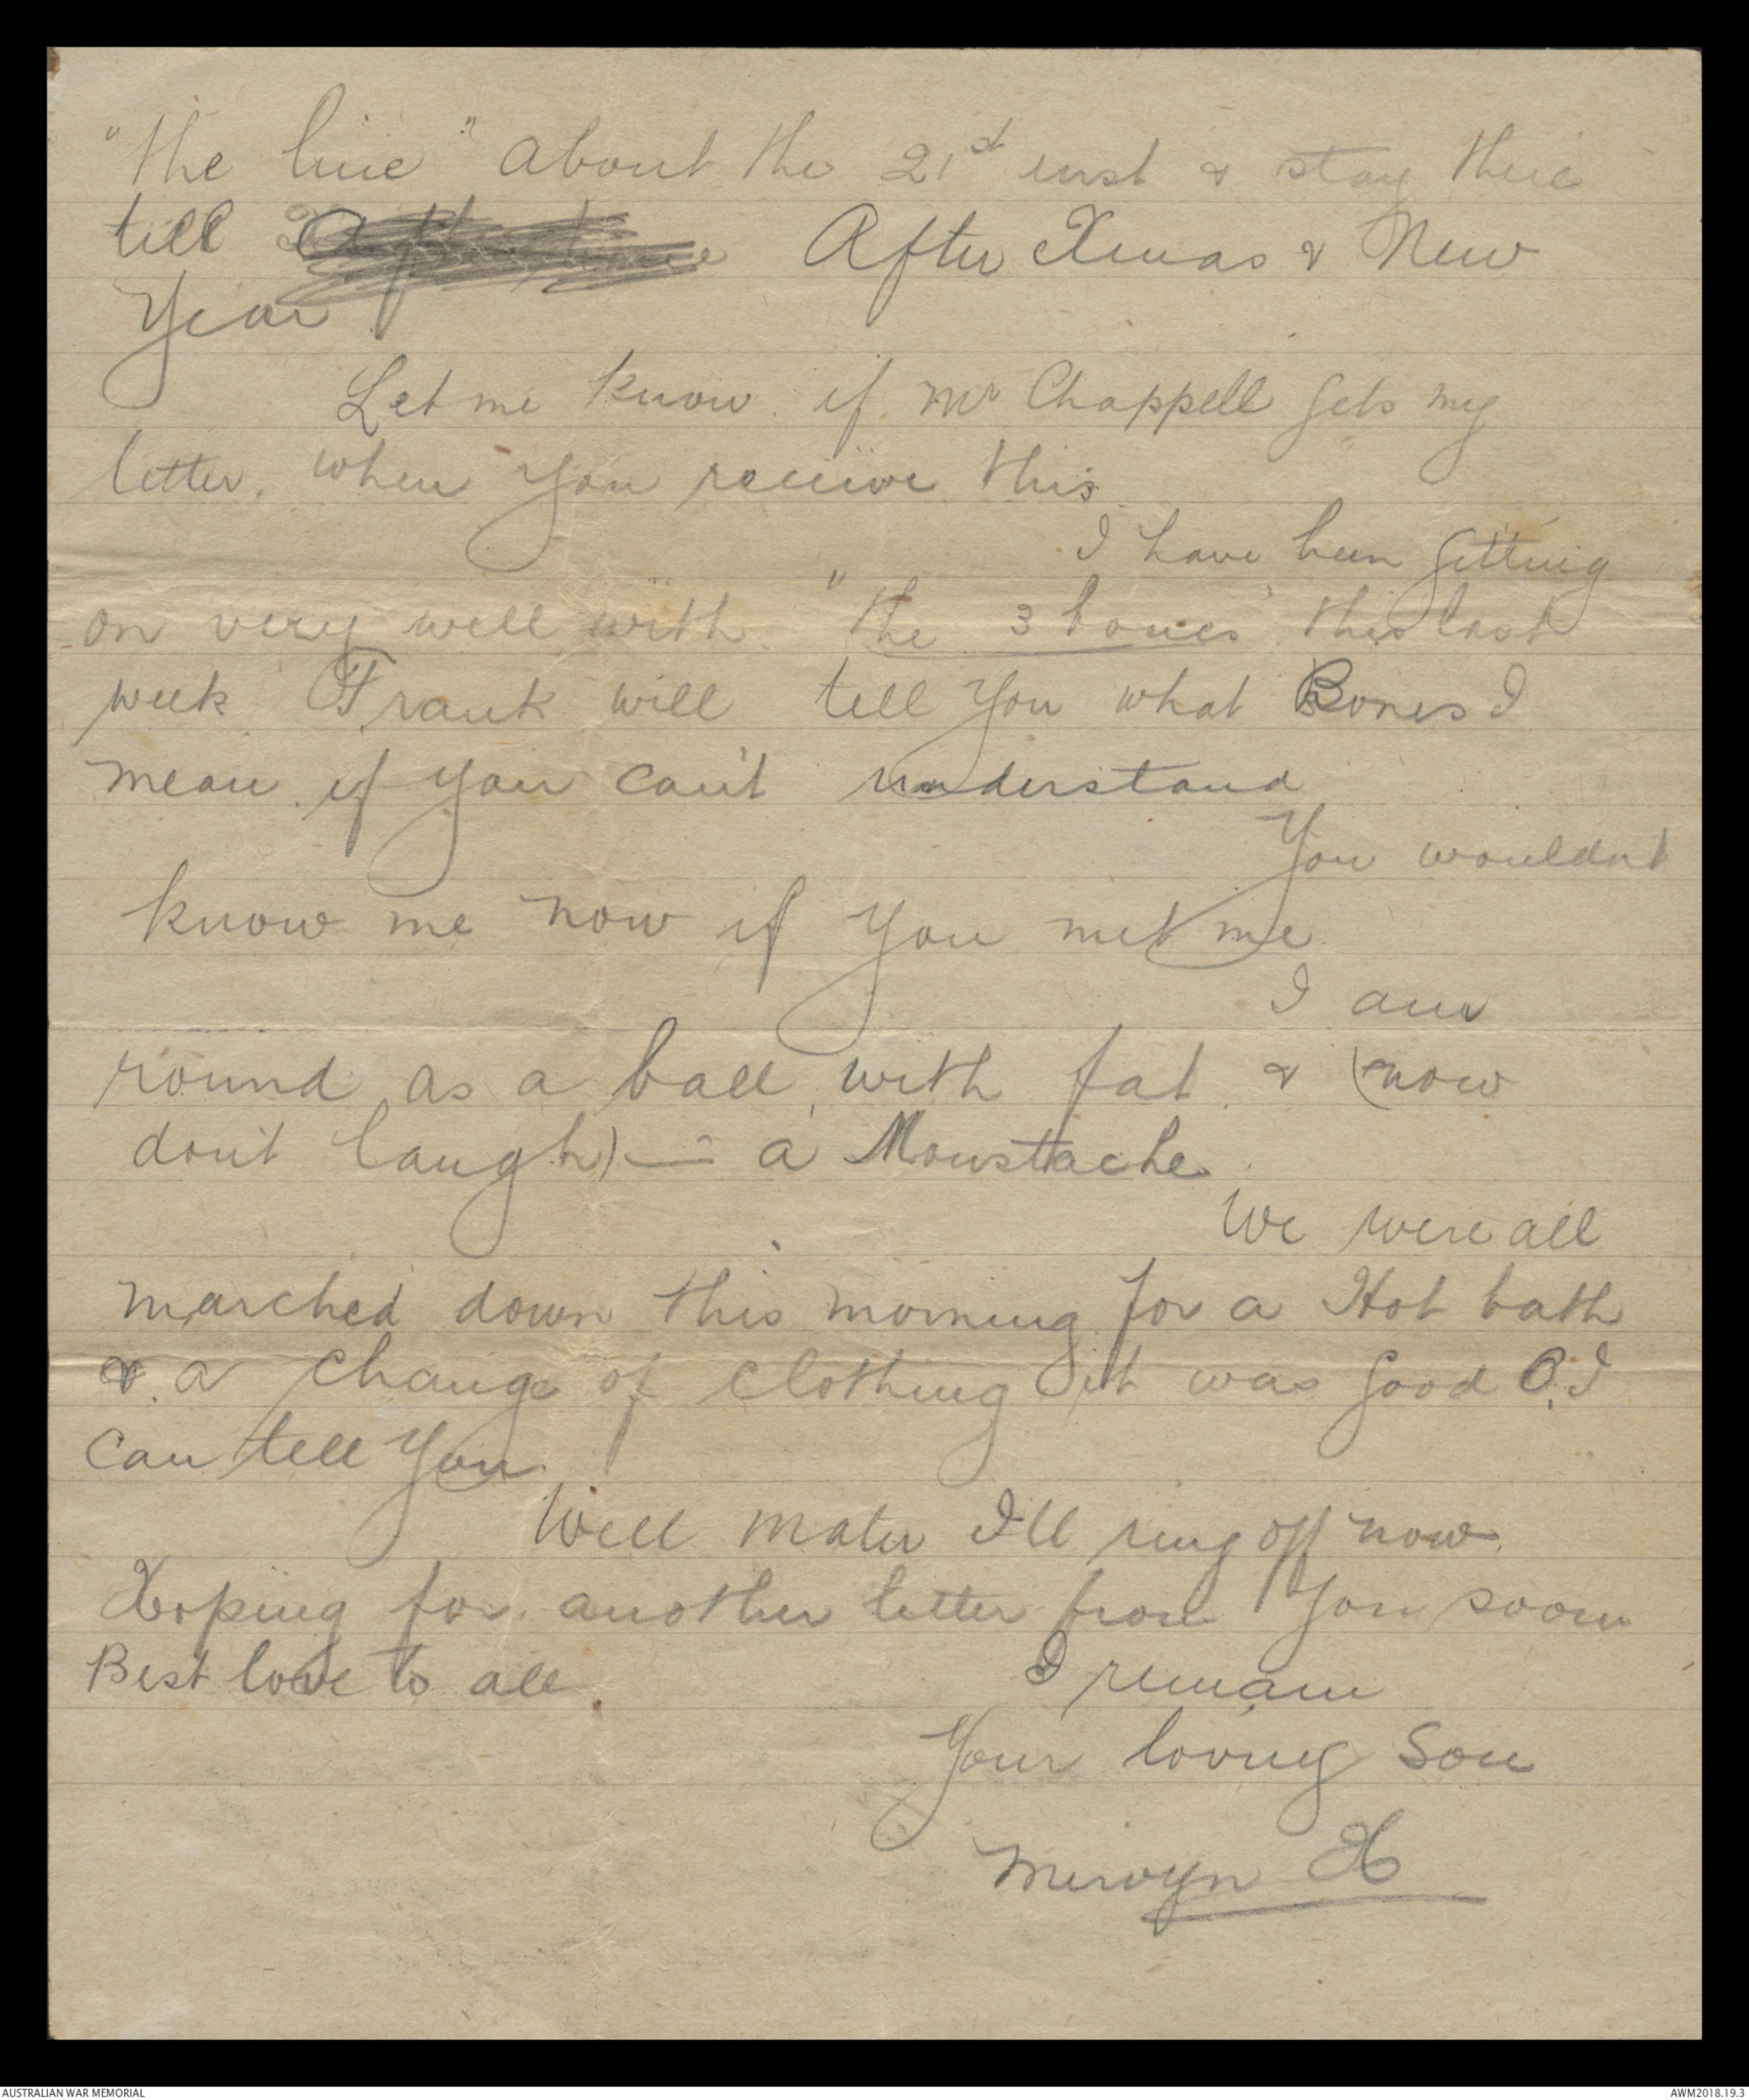 "the line" about the 21st inst & stay there
till After Xmas & New
Year
Let me know if Mr Chappell gets my
letter, when you receive this
I have been getting
on very well with "the 3 bones" this last
week Frank will tell you what Bones I
mean if you can't understand
You wouldnt
know me now if you met me.
I am
round as a ball, with fat & (now
don't laugh) — a Moustache.
We were all
marched down this morning for a Hot bath
& a change of clothing it was good O. I
can tell you.
Well mater I'll ring off now.
Hoping for another letter from you soon
Best love to all. I remain
Your loving Son
Mervyn H
AUSTRALIAN WAR MEMORIAL
AWM2018.19.3